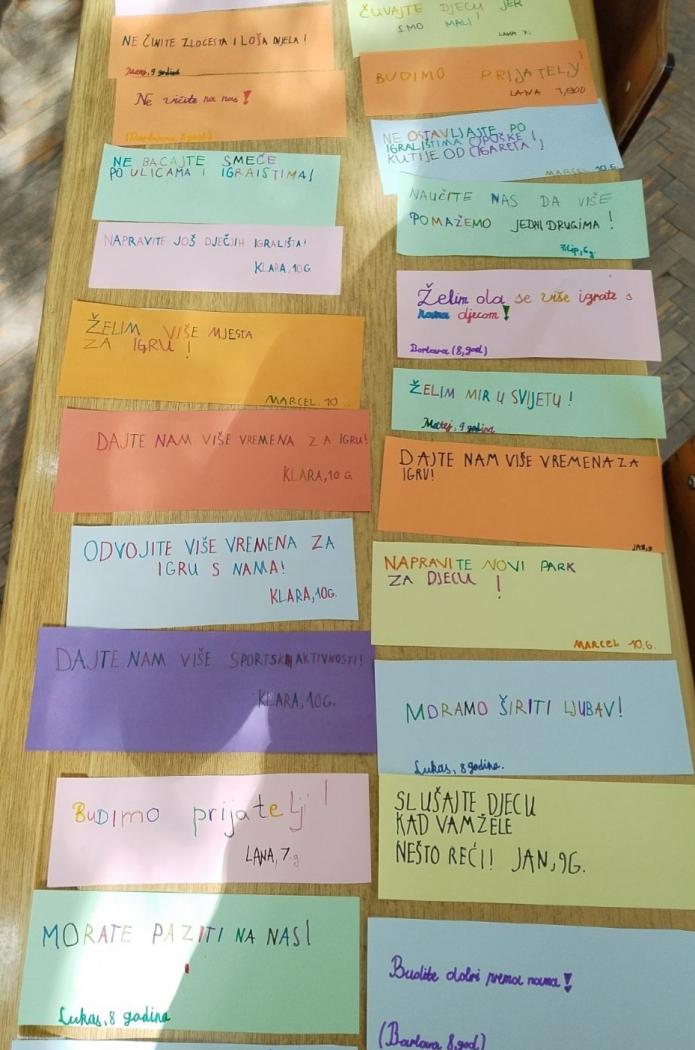 NE ČINITE ZLOČESTA I LOŠA DJELA!
Matej, 9 godina
Ne vičite na nas!
(Barbara 8,god)
NE BACAJTE SMEČE
PO ULICAMA I IGRAIŠTIMA!
NAPRAVITE JOŠ DJEČJIH IGRALIŠTA!
KLARA, 10G
ŽELIM VIŠE MJESTA
ZA IGRU !
MARCEL 10
DAJTE NAM VIŠE VREMENA ZA IGRU!
KLARA, 10 G
ODVOJITE VIŠE VREMENA ZA
IGRU S NAMA!
KLARA, 10G.
DAJTE NAM VIŠE SPORTSKI AKTIVNOSTI!
KLARA, 10G.
BUDIMO prijatelji !
LANA, 7.g
MORATE PAZITI NA NAS!
Lukas, 8 godina
ČUVAJTE DJECU JER
SMO MALI!
LANA 7.
BUDIMO PRIJATELJ!
LANA 7,GOD
NE OSTAVLJAJTE PO
IGRALIŠTIMA OPUŠKE !
KUTIJE OD CIGARETA!
MARCEL 10.G
NAUČITE NAS DA VIŠE
POMAŽEMO JEDNI DRUGIMA !
Filip, 6g
Želim da se više igrate s
nama djecom!
Barbara (8,god)
ŽELIM MIR U SVIJETU !
Matej, 9 godina
DAJTE NAM VIŠE VREMENA ZA
IGRU!
JAN, 9
NAPRAVITE NOVI PARK
ZA DJECU !
MARCEL 10,G.
MORAMO ŠIRITI LJUBAV!
Lukas, 8 godina.
SLUŠAJTE DJECU
KAD VAM ŽELE
NEŠTO REĆI! JAN, 9G.
Budite dobri prema nama!
(Barbara 8,god)